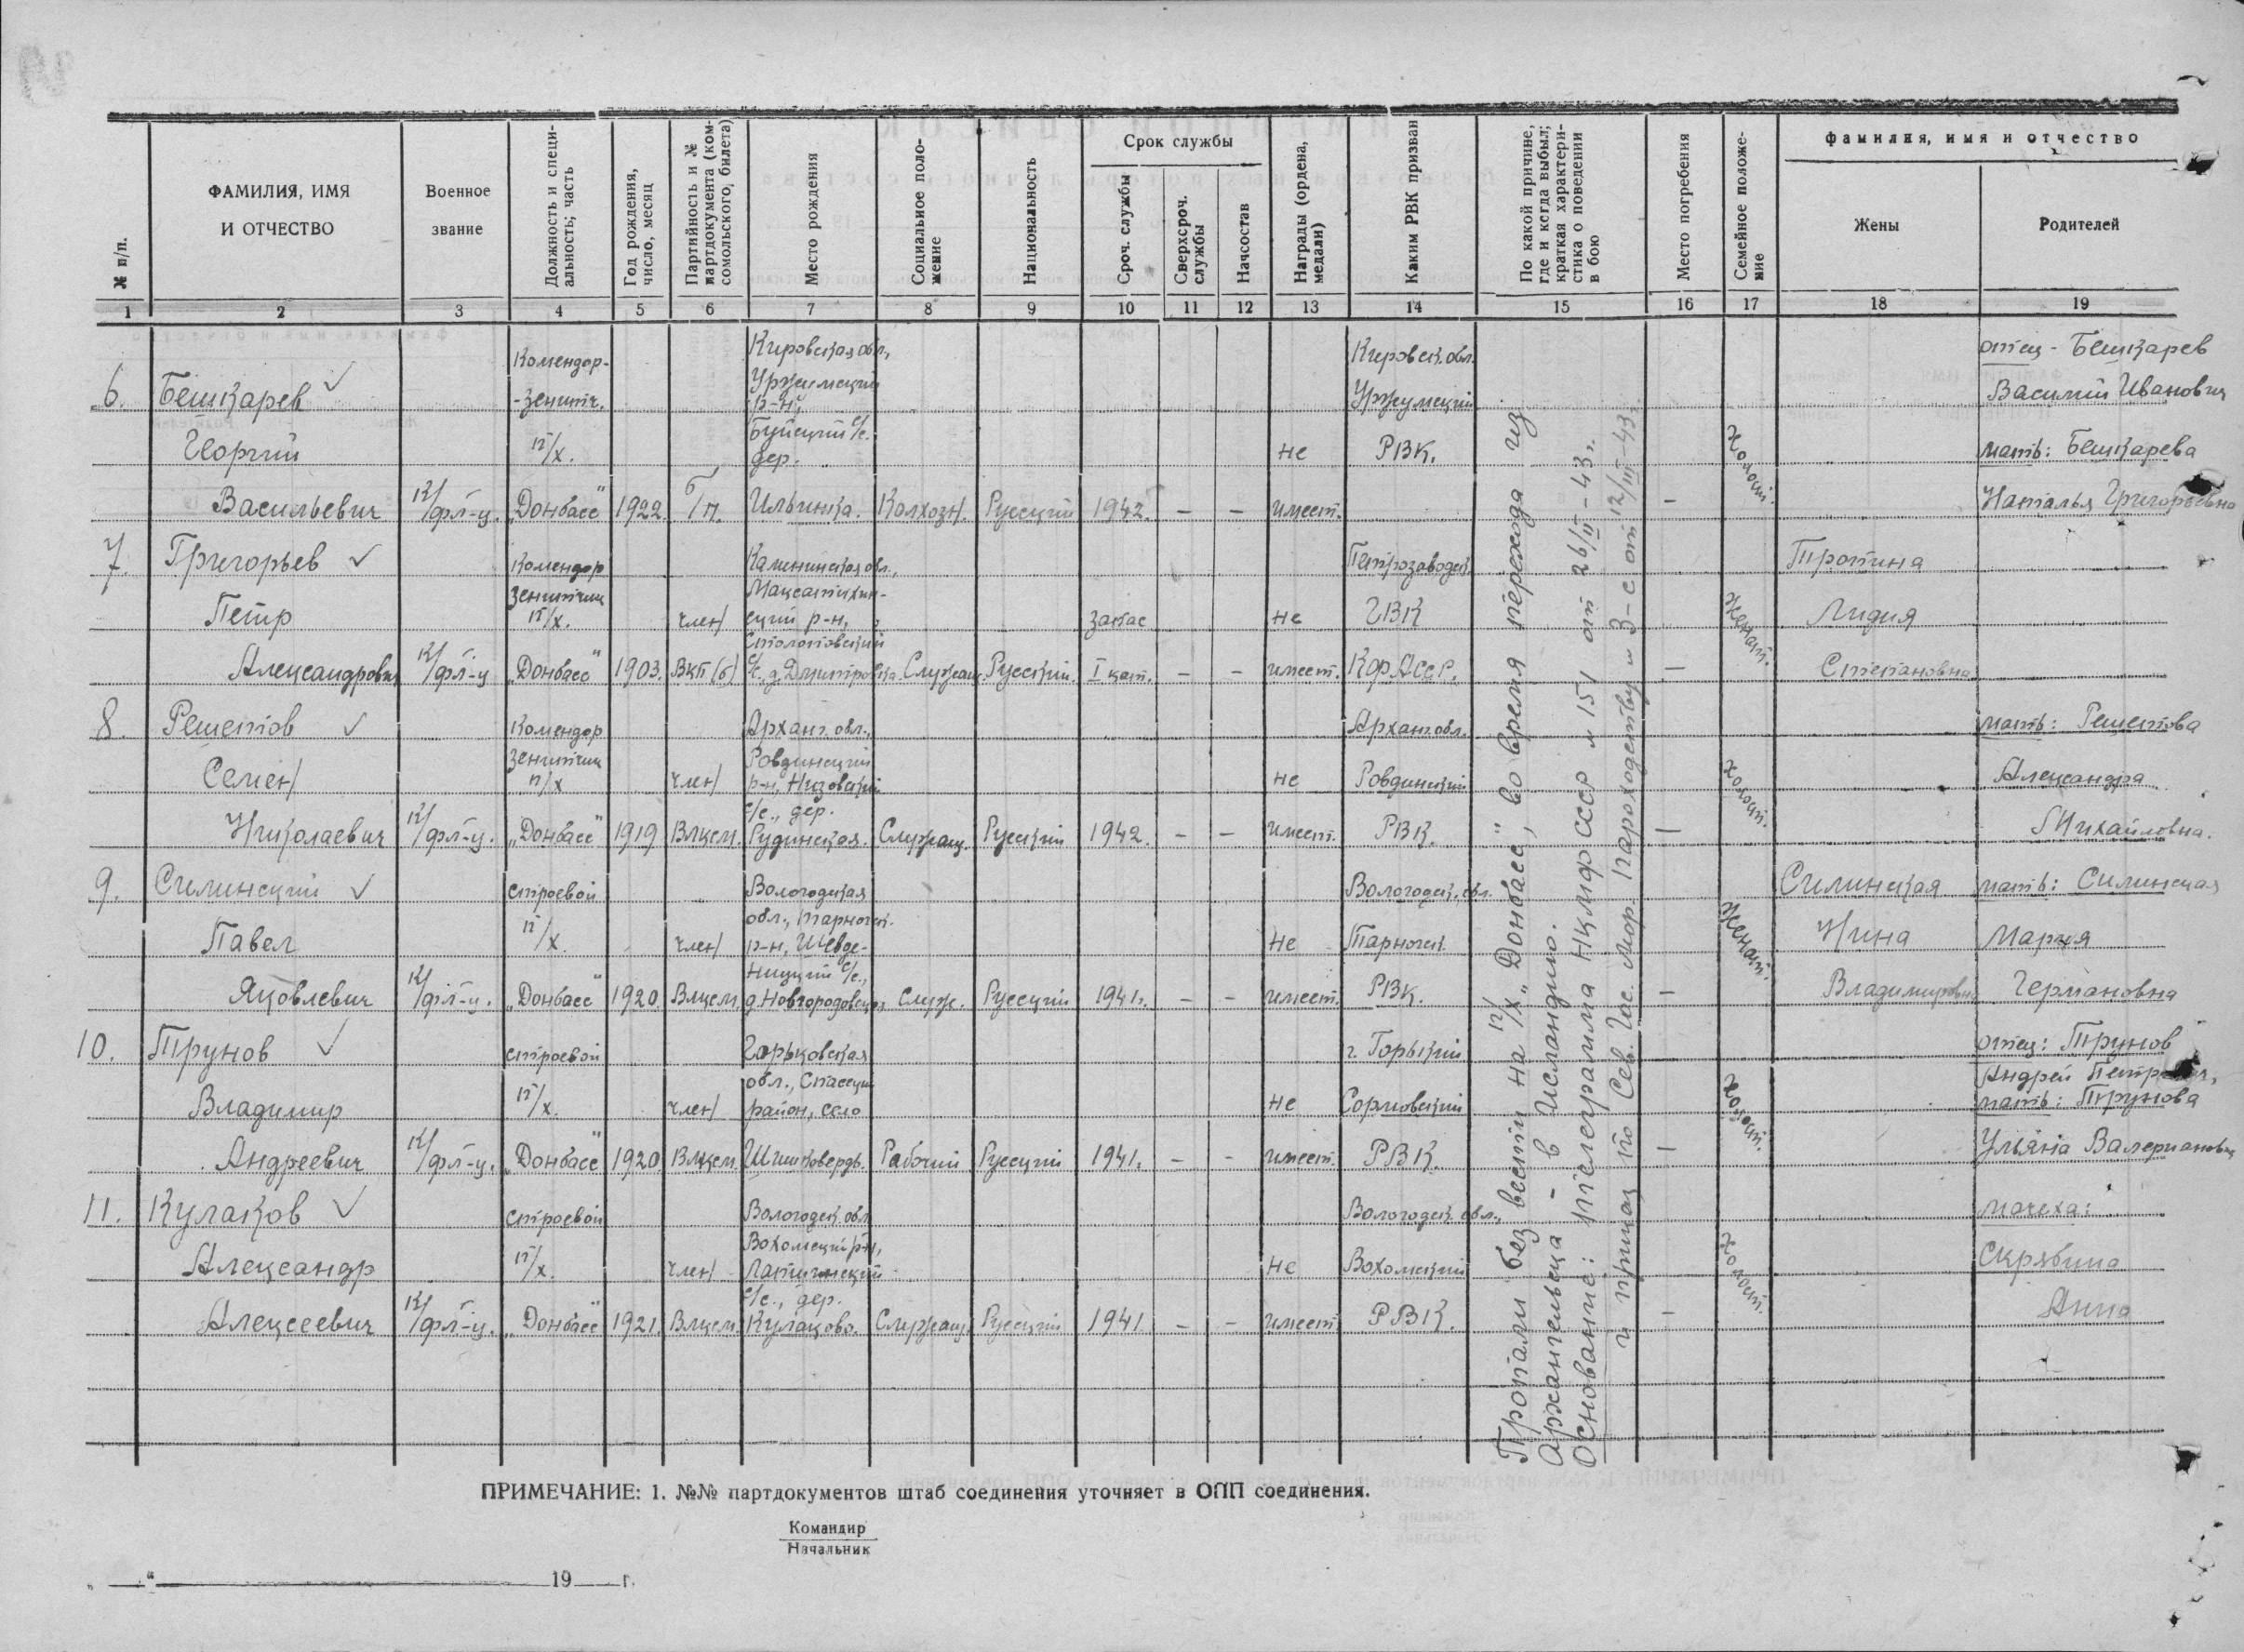 № п/п.
ФАМИЛИЯ, ИМЯ
И ОТЧЕСТВО
Военное
звание
Должность и специ-
альность; часть
Год рождения,
число, месяц
Партийность и №
партдокумента (ком-
сомольского, билета)
Место рождения
Социальное поло-
жение
Национальность
Срок службы
Сроч. службы
Сверхсроч.
службы
Начсостав
Награды (ордена,
медали)
Каким РВК призван
По какой причине,
где и когда выбыл;
краткая характери-
стика о поведении
в бою
Место погребения
Семейное положе-
ние
фамилия, имя и отчество
Жены
Родителей
1 2 3 4 5 6 7 8 9 10 11 12 13 14 15 16 17 18 19
6. Бешкарев
Георгий
Васильевич
К/фл-ц.
Комендор-
-зенитч.
п/х.
„Донбасс"
1922.
б/п.
Кировская обл.,
Уржумский
р-н,
Буйский с/с.
дер.
Ильинка.
Колхозн.
Русский
1942.
– –
не
имеет.
Кировск. обл.
Уржумский
РВК.
–
Холост.
отец - Бешкарев
Василий Иванович
мать: Бешкарева
Наталья Григорьевна
7. Григорьев
Петр
Александрович
К/фл-ц
Комендор
зенитчик
п/х.
„Донбасс"
1903.
член
ВКП(б)
Калининская обл.,
Максатихин-
ский р-н,
с/с., д. Дмитровка.
Служащ.
Русский.
запас
I кат.
– –
не
имеет.
Петрозаводск.
ГВК
КФАССР.
–
Женат.
Тропина
Лидия
Степановна
8. Решетов
Семен
Николаевич
К/фл-ц.
Комендор
зенитчик
п/х
„Донбасс"
1919
член
ВЛКСМ.
Арханг. обл.,
Ровдинский
р-н, Низовский
с/с., дер.
Рудинская.
Служащ.
Русский
1942.
– –
не
имеет.
Арханг. обл.
Ровдинский
РВК.
–
холост.
мать: Решетова
Александра
Михайловна.
9. Силинский
Павел
Яковлевич
К/фл-ц.
строевой
п/х.
„Донбасс"
1920.
член
ВЛКСМ.
Вологодская
обл., Тарногск.
р-н, Шевде-
ницкий с/с.,
д. Новгородовская
Служ.
Русский
1941.
– –
не
имеет.
Вологодск. обл.
Тарногск.
РВК.
–
Женат.
Силинская
Нина
Владимировна
мать: Силинская
Мария
Германовна
10. Трунов
Владимир
Андреевич
К/фл-ц.
строевой
п/х.
„Донбасс"
1920
член
ВЛКСМ.
Горьковская
обл., Спасский
район, село
Шишковердь.
Рабочий
Русский
1941.
– –
не
имеет.
г. Горький
Сормовский
РВК.
–
Холост.
отец: Трунов
Андрей Петрович,
мать: Трунова
Ульяна Валериановна
11. Кулаков
Александр
Алексеевич
К/фл-ц.
строевой
п/х.
„Донбасс"
1921.
член
ВЛКСМ.
Вологодск. обл.
Вохомский р-н,
Лапшинский
с/с., дер.
Кулаково.
Служащ.
Русский
1941.
– –
не
имеет
Вологодск. обл.,
Вохомский
РВК.
–
Холост.
мачеха:
Скрябина
Анна
Пропали без вести на п/х „Донбасс", во время перехода из
Архангельска - в Исландию.
Основание: телеграмма НКМФ СССР № 151 от 26/II-43г.
и приказ по Сев. Гос. Мор. Пароходству № 3-с от 12/III-43г.
ПРИМЕЧАНИЕ: 1. №№ партдокументов штаб соединения уточняет в ОПП соединения.
Командир
Начальник
„ “ 19 г.